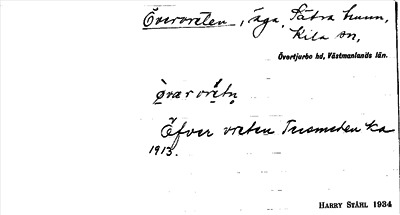 Övervreten, äga, Sätra brunn,
Kila sn,
Övertjurbo hd, Västmanlands län.
ö̀vær vrétn̥
Öfver vreten Ka
1913.
HARRY STÅHL 1934